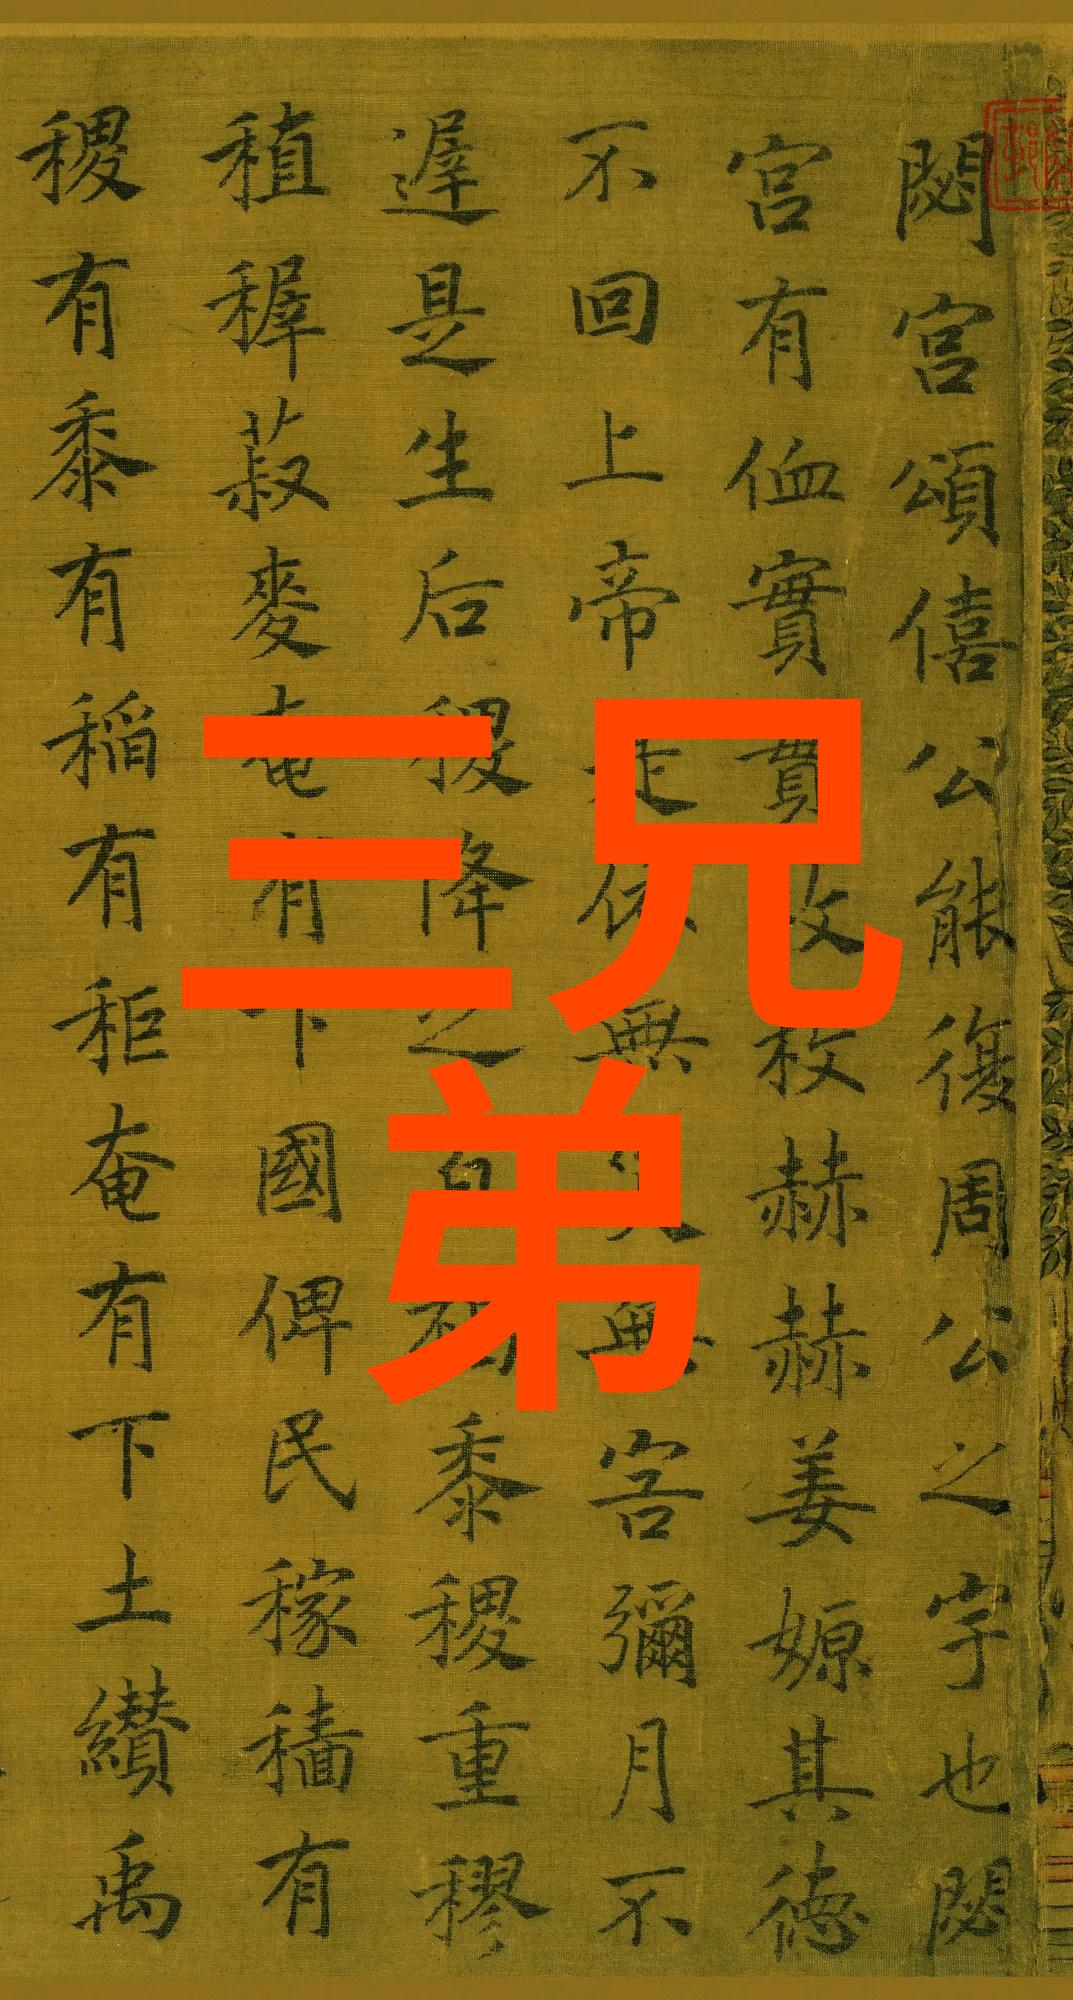 閟宮頌僖公能復周公之宇也閟
宮有侐實實枚枚赫赫姜嫄其德
不回上帝是依無災無害彌月不
遲是生后稷降之百福黍稷重穋
稙稺菽麥奄有下國俾民稼穡有
稷有黍有稻有秬奄有下土纘禹
三兄
弟